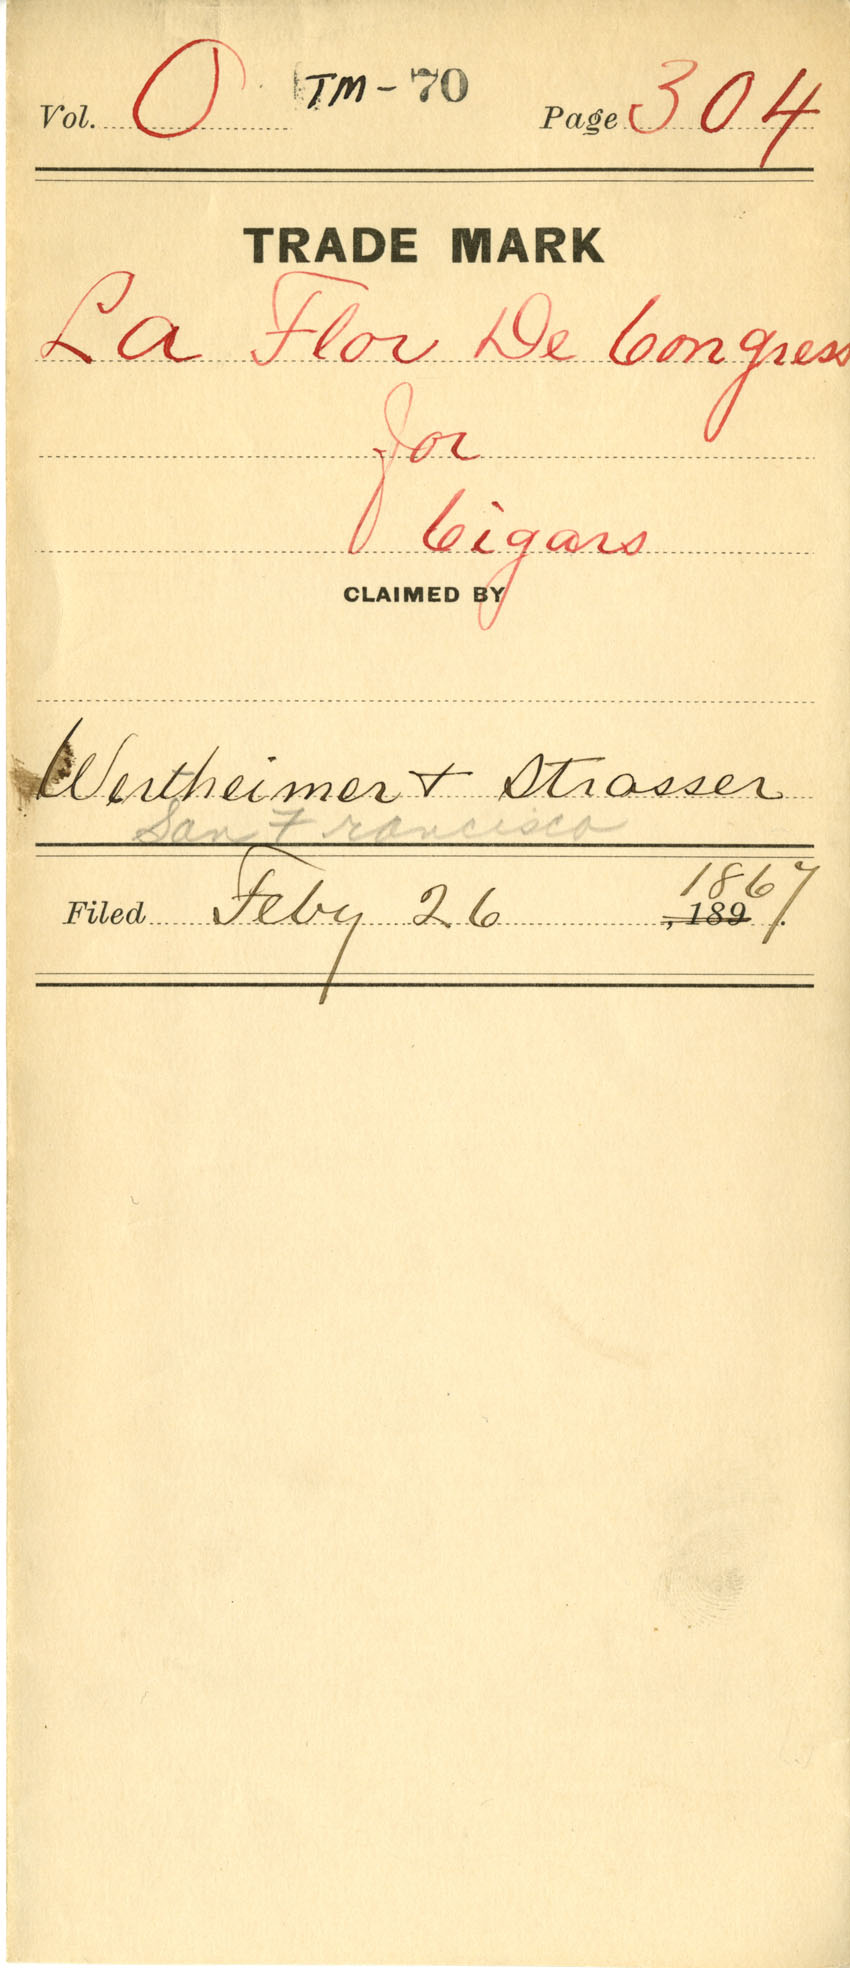 Vol. O TM-70 Page 304
TRADE MARK
La Flor De Congress
for
Cigars
CLAIMED BY
Wertheimer + Strasser
San Francisco
1867
Filed Feby 26 , 189 .